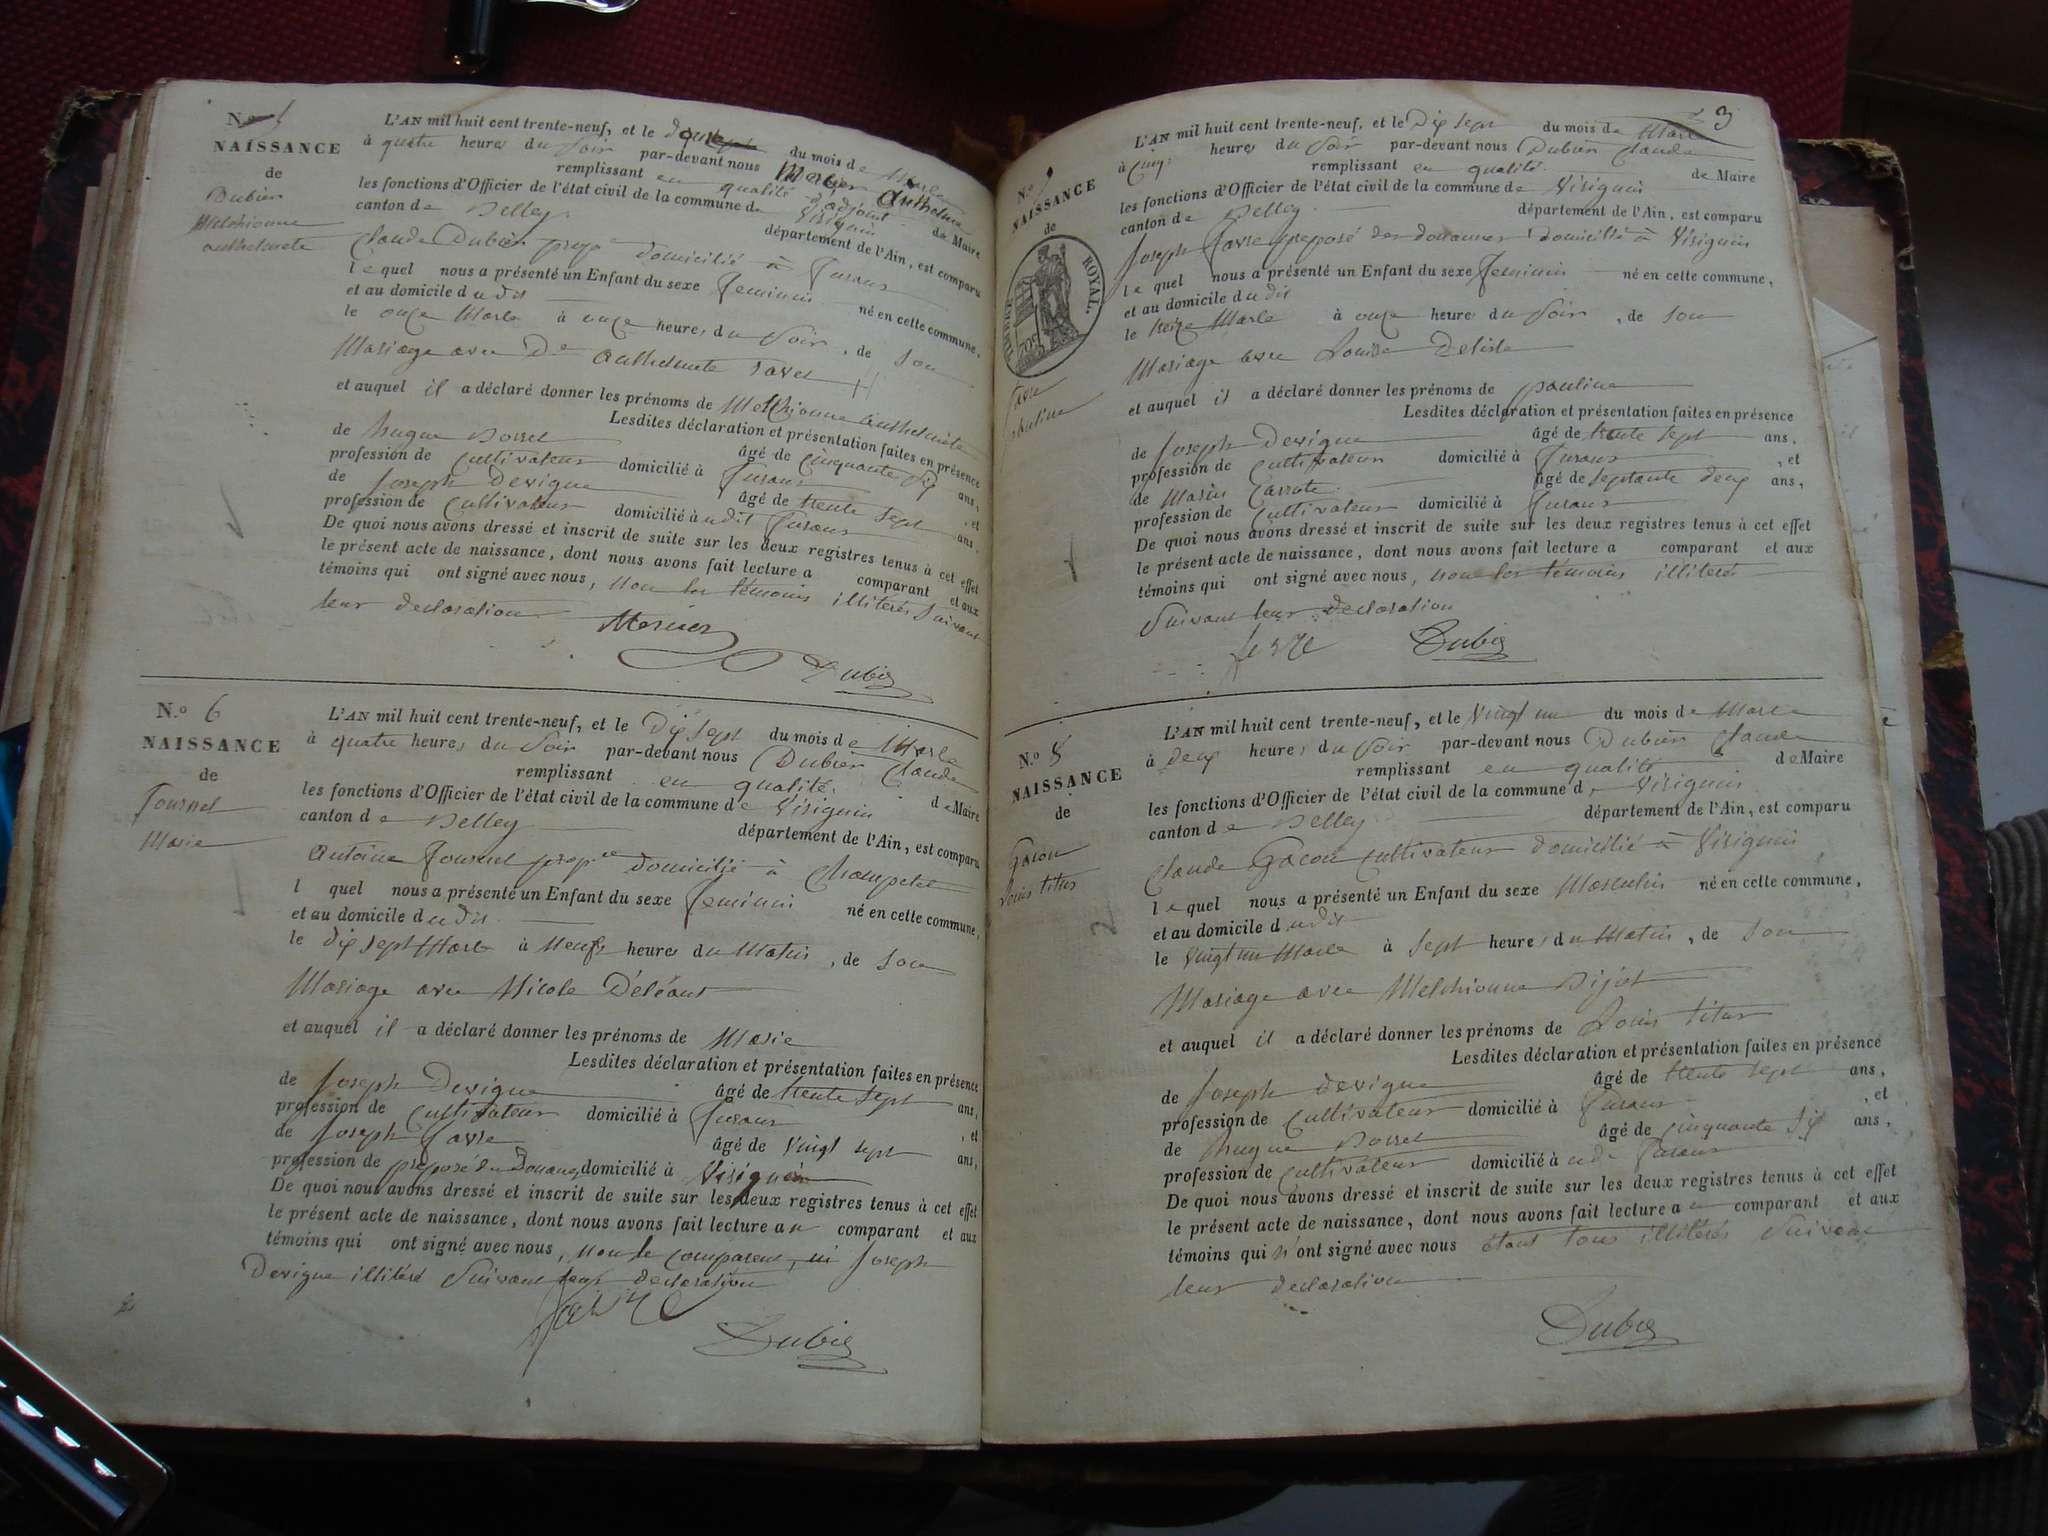 N.o 5
NAISSANCE
de
Dubien
Melchionne
anthelmete
L'AN mil huit cent trente-neuf, et le douze du mois de Mars
à quatre heures du Soir par-devant nous Mercier Anthelme
remplissant en qualité d'adjoint de Maire
les fonctions d'Officier de l'état civil de la commune de Virignin
canton de Belley département de l'Ain, est comparu
Claude Dubien prop.re domicilié à
lequel nous a présenté un Enfant du sexe feminin né en cette commune,
et au domicile dudit
le onze Mars à onze heures du Soir, de Son
Mariage avec D.e Anthelmete
et auquel il a déclaré donner les prénoms de Melchionne anthelmete
Lesdites déclaration et présentation faites en présence
de hugue âgé de Cinquante Six ans,
profession de Cultivateur domicilié à , et
de Joseph Devigne âgé de trente Sept ans,
profession de Cultivateur domicilié à udit
De quoi nous avons dressé et inscrit de suite sur les deux registres tenus à cet effet
le présent acte de naissance, dont nous avons fait lecture a comparant et aux
témoins qui ont signé avec nous, non les témoins illiterés Suivant
leur declaration
Mercier
Dubien
N.o 6
NAISSANCE
de
Fournel
Marie
L'AN mil huit cent trente-neuf, et le Dix Sept du mois de Mars
à quatre heures du Soir par-devant nous Dubien Claude
remplissant en qualité de Maire
les fonctions d'Officier de l'état civil de la commune de Virignin
canton de Belley département de l'Ain, est comparu
Antoine Fournel prop.re domicilié à
l quel nous a présenté un Enfant du sexe feminin né en cette commune,
et au domicile dudit
le dix sept Mars à Neuf heures du Matin, de Son
Mariage avec Nicole Déléaux
et auquel il a déclaré donner les prénoms de Marie
Lesdites déclaration et présentation faites en présence
de Joseph Devigne âgé de trente Sept ans,
profession de Cultivateur domicilié à , et
de Joseph Favre âgé de Vingt sept ans,
profession de préposé des Douanes domicilié à Virignin
De quoi nous avons dressé et inscrit de suite sur les deux registres tenus à cet effet
le présent acte de naissance, dont nous avons fait lecture au comparant et aux
témoins qui ont signé avec nous, non le comparent, ni Joseph
Devigne illiteré Suivant leur declaration
Favre
Dubien
3
N.o 7
NAISSANCE
de
TIMBRE ROYAL.
Favre
pauline
L'AN mil huit cent trente-neuf, et le Dix Sept du mois de Mars
à Cinq heures du Soir par-devant nous Dubien Claude
remplissant en qualité de Maire
les fonctions d'Officier de l'état civil de la commune de Virignin
canton de Belley département de l'Ain, est comparu
Joseph Favre preposé des douanes domicilié à Virignin
lequel nous a présenté un Enfant du sexe feminin né en cette commune,
et au domicile dudit
le Seize Mars à onze heures du Soir, de Son
Mariage avec Louise Delisle
et auquel il a déclaré donner les prénoms de pauline
Lesdites déclaration et présentation faites en présence
de Joseph Devigne âgé de trente sept ans,
profession de Cultivateur domicilié à , et
de Marin âgé de Septante deux ans,
profession de Cultivateur domicilié à
De quoi nous avons dressé et inscrit de suite sur les deux registres tenus à cet effet
le présent acte de naissance, dont nous avons fait lecture a comparant et aux
témoins qui ont signé avec nous, non les témoins illiterés
Suivant leur declaration
Favre Dubien
N.o 8
NAISSANCE
de
Gacon
Louis titus
2
L'AN mil huit cent trente-neuf, et le Vingt un du mois de Mars
à deux heures du Soir par-devant nous Dubien Claude
remplissant en qualité de Maire
les fonctions d'Officier de l'état civil de la commune d Virignin
canton de Belley département de l'Ain, est comparu
Claude Gacon Cultivateur domicilié à Virignin
lequel nous a présenté un Enfant du sexe Masculin né en cette commune,
et au domicile dudit
le Vingt un Mars à Sept heures du Matin, de Son
Mariage avec Melchionne
et auquel il a déclaré donner les prénoms de Louis titus
Lesdites déclaration et présentation faites en présence
de Joseph devigne âgé de trente sept ans,
profession de Cultivateur domicilié à , et
de hugue âgé de Cinquante Six ans,
profession de Cultivateur domicilié à
De quoi nous avons dressé et inscrit de suite sur les deux registres tenus à cet effet
le présent acte de naissance, dont nous avons fait lecture au comparant et aux
témoins qui n'ont signé avec nous étant tous illiterés Suivant
leur declaration
Dubien